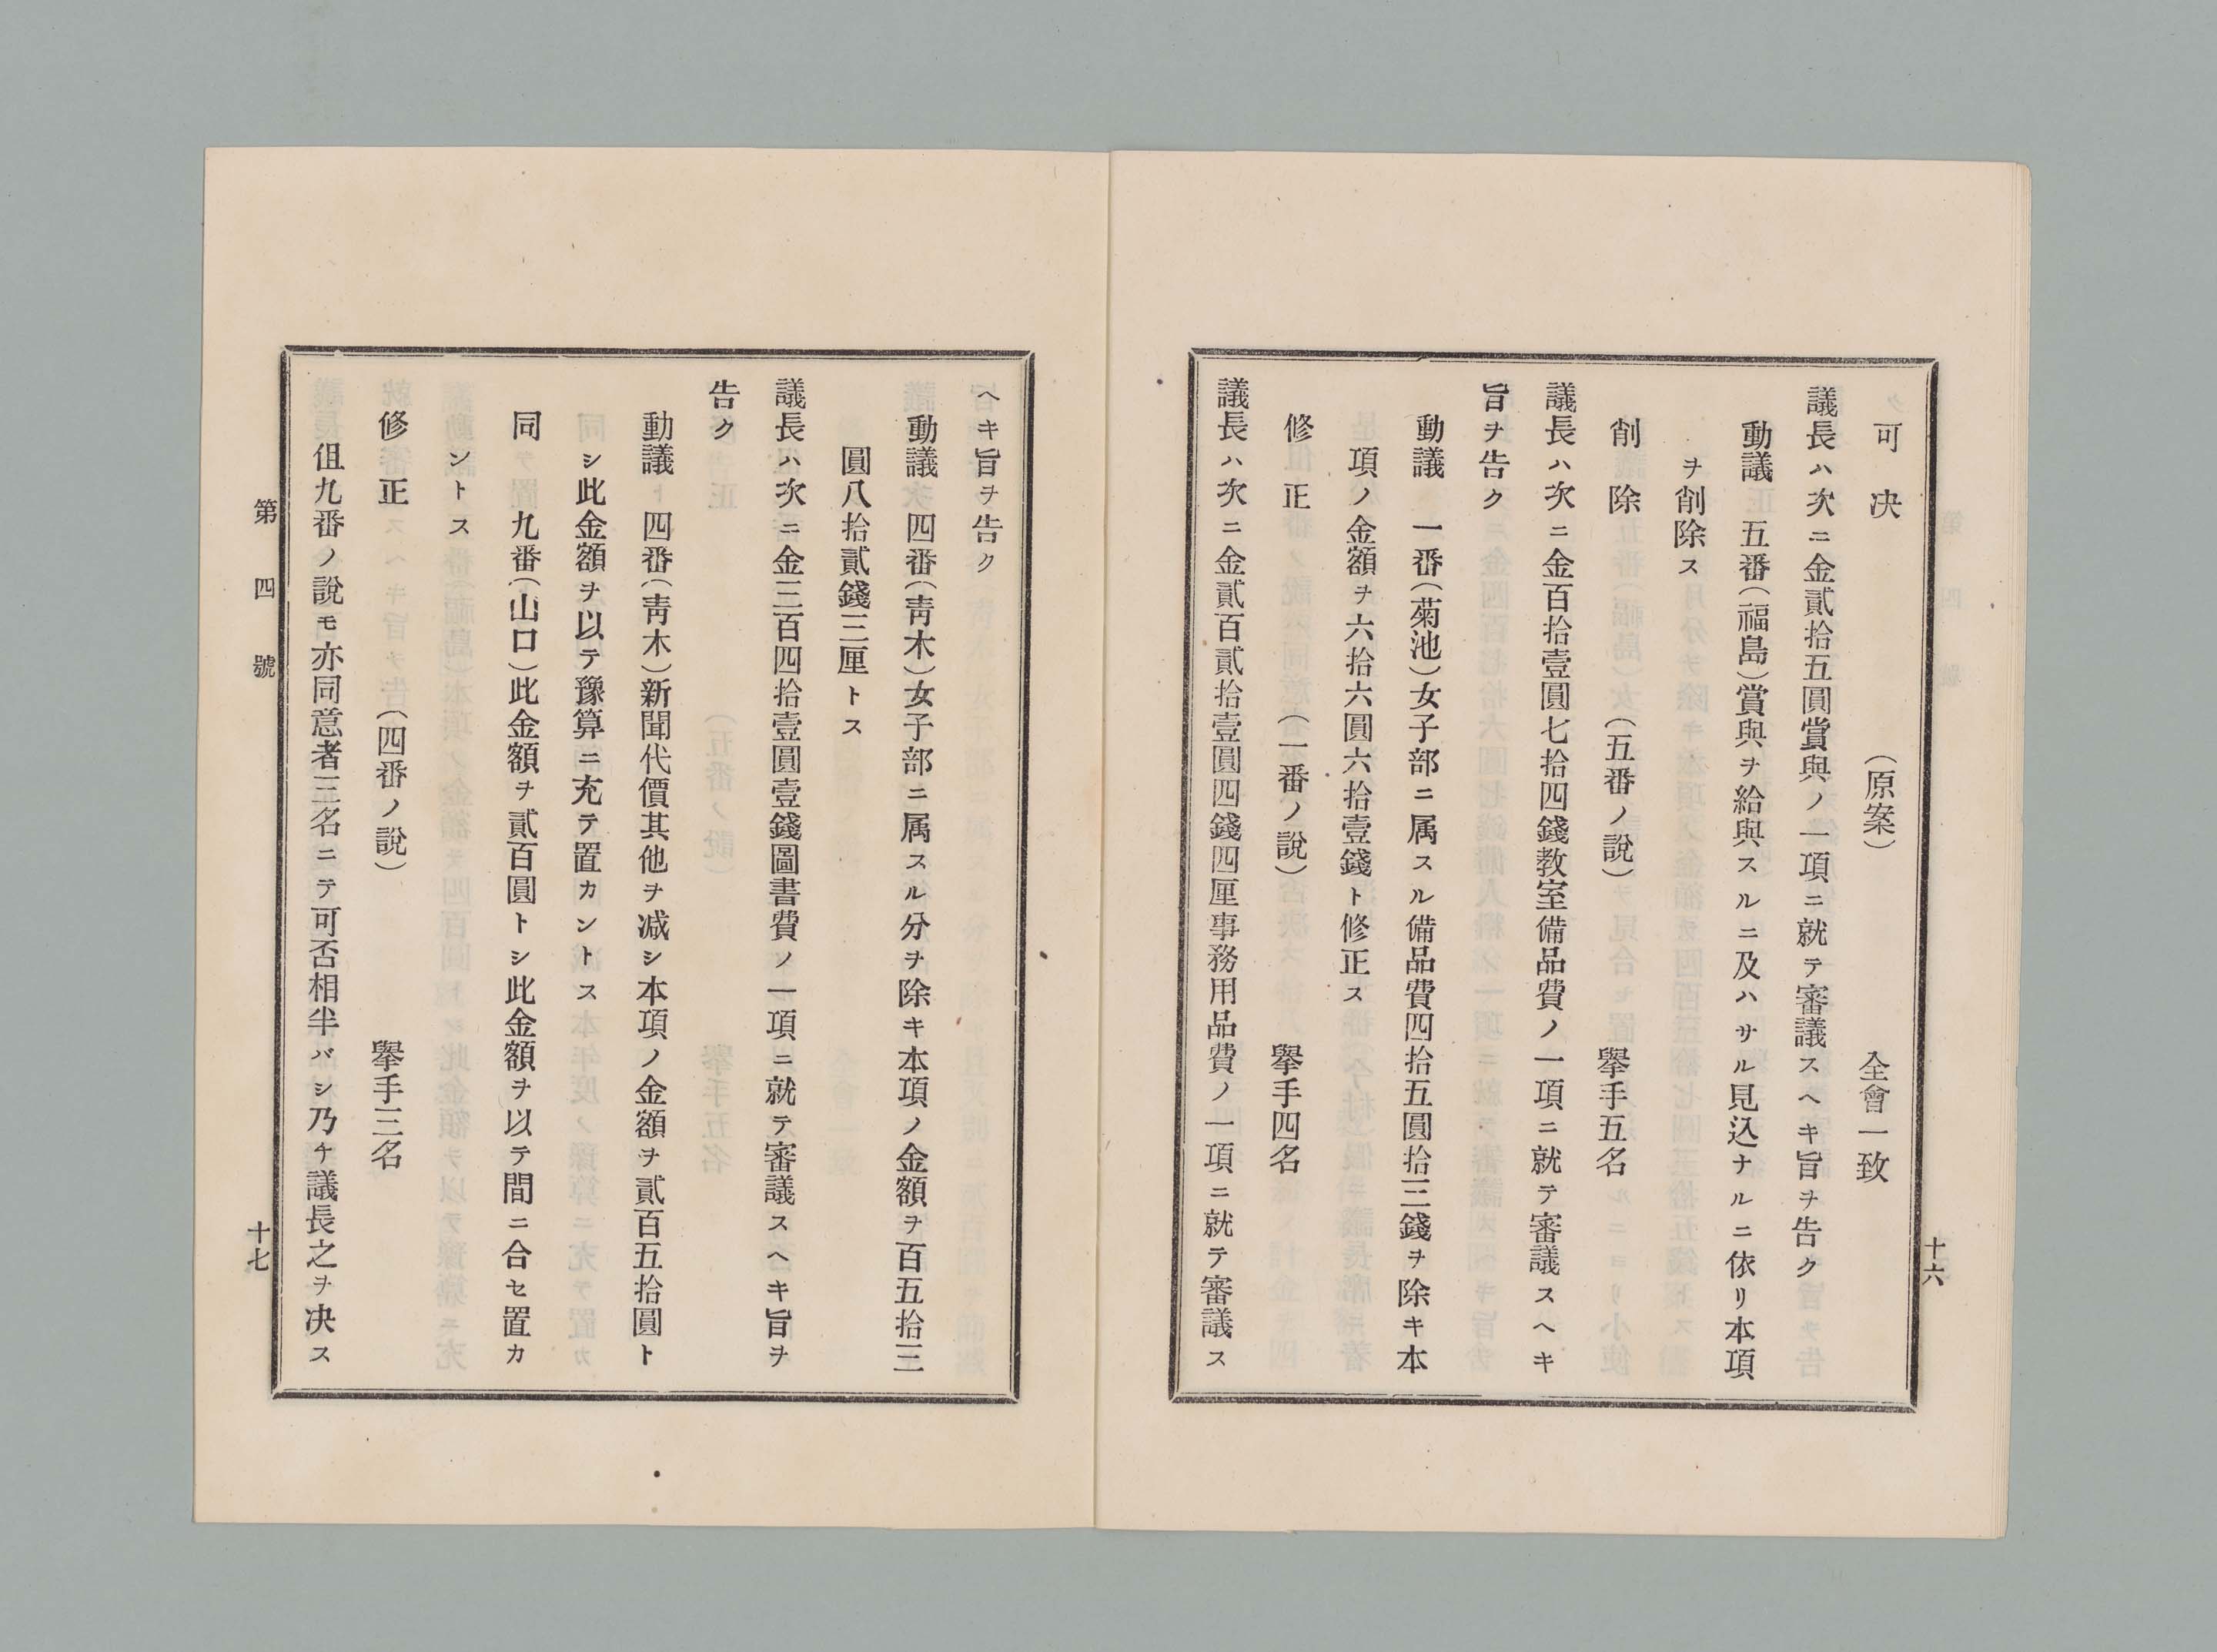 十六
可決 (原案) 全會一致
議長ハ次ニ金貳拾五圓賞與ノ一項ニ就テ審議スヘキ旨ヲ告ク
動議 五番(福島)賞與ヲ給與スルニ及ハサル見込ナルニ依リ本項
ヲ削除ス
削除 (五番ノ說) 擧手五名
議長ハ次ニ金百拾壹圓七拾四錢教室備品費ノ一項ニ就テ審議スヘキ
旨ヲ告ク
動議 一番(菊池)女子部ニ属スル備品費四拾五圓拾三錢ヲ除キ本
項ノ金額ヲ六拾六圓六拾壹錢ト修正ス
修正 (一番ノ說) 擧手四名
議長ハ次ニ金貳百貳拾壹圓四錢四厘事務用品費ノ一項ニ就テ審議ス
ヘキ旨ヲ告ク
動議 四番(靑木)女子部ニ属スル分ヲ除キ本項ノ金額ヲ百五拾三
圓八拾貳錢三厘トス
議長ハ次ニ金三百四拾壹圓壹錢圖書費ノ一項ニ就テ審議スヘキ旨ヲ
告ク
動議 四番(靑木)新聞代價其他ヲ减シ本項ノ金額ヲ貳百五拾圓ト
シ此金額ヲ以テ豫算ニ充テ置カントス
同 九番(山口)此金額ヲ貳百圓トシ此金額ヲ以テ間ニ合セ置カ
ントス
修正 (四番ノ說) 擧手三名
伹九番ノ說モ亦同意者三名ニテ可否相半バシ乃チ議長之ヲ决ス
第四號
十七